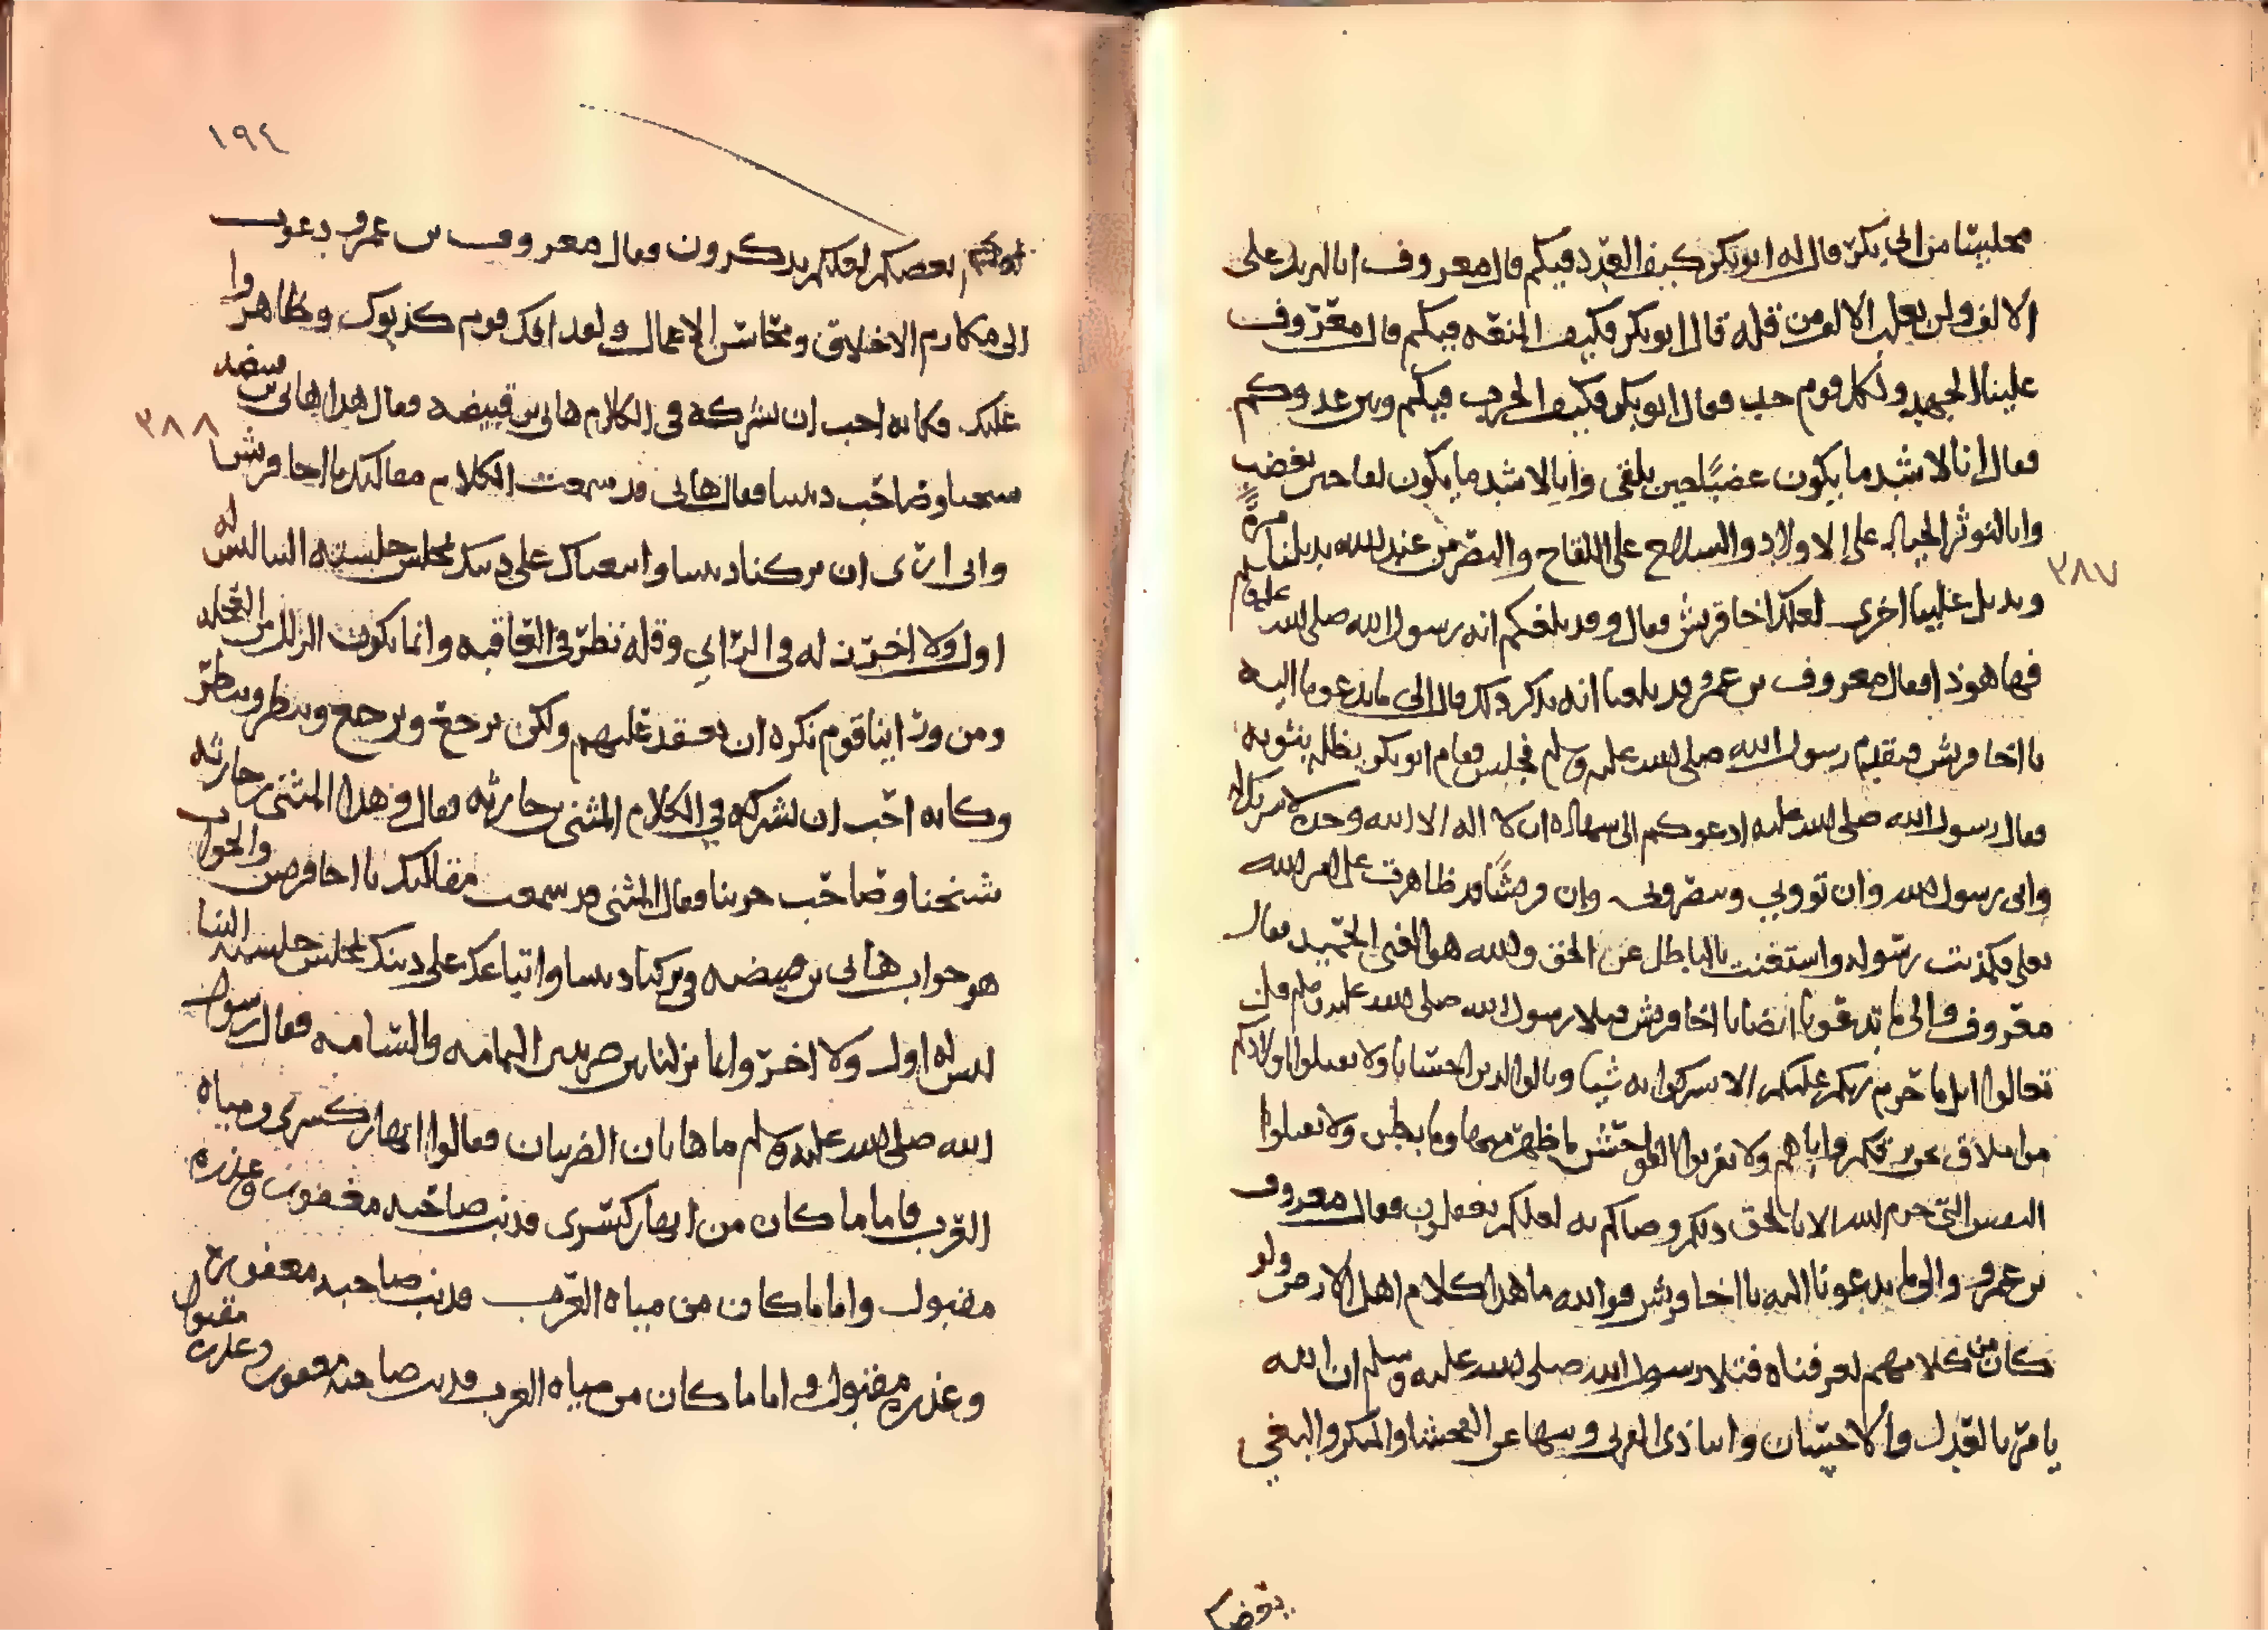 مجلسا من ابي بكر فقال له ابو بكر كيف العدد فيكم قال معروف انا لنزيد على
الالف ولن يغلب الالف من قلة قال ابو بكر فكيف المنعة فيكم قال معروف
علينا الجهد ولكل قوم جد فقال ابو بكر فكيف الحرب فيكم وبين عدوكم
فقال انا لاشد ما يكون غضبا حين يلقى وانا لاشد ما يكون لقا حين نغضب
وانا لنوثر الجياد على الاولاد والسلاح على اللقاح والنصر من عند الله يديلنا مرة
ويديل علينا اخرى لعلك اخا قريش فقال وقد بلغكم انه رسول الله صلى الله عليه وسلم
فها هو ذا فقال معروف بن عمرو قد بلغنا انه يذكر ذلك قال الى ما تدعونا اليه
يا اخا قريش فتقدم رسول الله صلى الله عليه وسلم فجلس فقام ابو بكر يظله بثوبه
فقال رسول الله صلى الله عليه ادعوكم الى شهادة ان لا اله الا الله وحده لا شريك له
واني رسول الله وان تؤوني وتنصروني وان قريشا قد ظاهرت على امر الله
تعلى فكذبت رسوله واستغنت بالباطل عن الحق والله هو الغني الحميد فقال
معروف والى ما تدعونا ايضا يا اخا قريش فتلا رسول الله صلى الله عليه وسلم قل
تعالوا اتل ما حرم ربكم عليكم الا تشركوا به شيا وبالوالدين احسانا ولا تقتلوا اولادكم
من املاق نحن نرزقكم واياهم ولا تقربوا الفواحش ما ظهر منها وما بطن ولا تقتلوا
النفس التي حرم الله الا بالحق ذلكم وصاكم به لعلكم تعقلون فقال معروف
بن عمرو والى ما تدعونا اليه يا اخا قريش فوالله ما هذا كلام اهل الارض ولو
كان من كلامهم لعرفناه فتلا رسول الله صلى الله عليه وسلم ان الله
يامر بالعدل والاحسان وايتا ذي القربى وينهى عن الفحشا والمنكر والبغي
٣٨٧
١٩٤
يعظكم لعلكم تذكرون فقال معروف بن عمرو دعوت
الى مكارم الاخلاق ومحاسن الاعمال ولقد افك قوم كذبوك وظاهروا
عليك وكانه احب ان يشركه في الكلام هاني بن قبيصة فقال هذا هاني بن قبيصة
شيخنا وصاحب ديننا فقال هاني قد سمعت الكلام مقالتك يا اخا قريش
واني ارى ان تركنا ديننا واتبعناك على دينك لمجلس جلسته الينا ليس له
اول ولا اخر زلل في الراي وقلة نظر في العاقبة وانما تكون الزلة من العجلة
ومن ورائنا قوم نكره ان نعقد عليهم ولكن نرجع وترجع وننظر وتنظر
وكانه احب ان يشركه في الكلام المثنى بن حارثة فقال وهذا المثنى بن حارثة
شيخنا وصاحب حربنا فقال المثنى قد سمعت مقالتك يا اخا قريش والجواب
هو جواب هاني بن قبيصة في تركنا ديننا واتباعك على دينك لمجلس جلسته الينا
ليس له اول ولا اخر وانما نزلنا بين صريين اليمامة والشامة فقال رسول
الله صلى الله عليه وسلم ما هاتان الصريان فقالوا انهار كسرى ومياه
العرب فاما ما كان من انهار كسرى فذنب صاحبه مغفور وعذره
مقبول واما ما كان من مياه العرب فذنب صاحبه مغفور
وعذره مقبول واما ما كان من مياه العرب فذنب صاحبه مغفور وعذره مقبول
٣٨٨